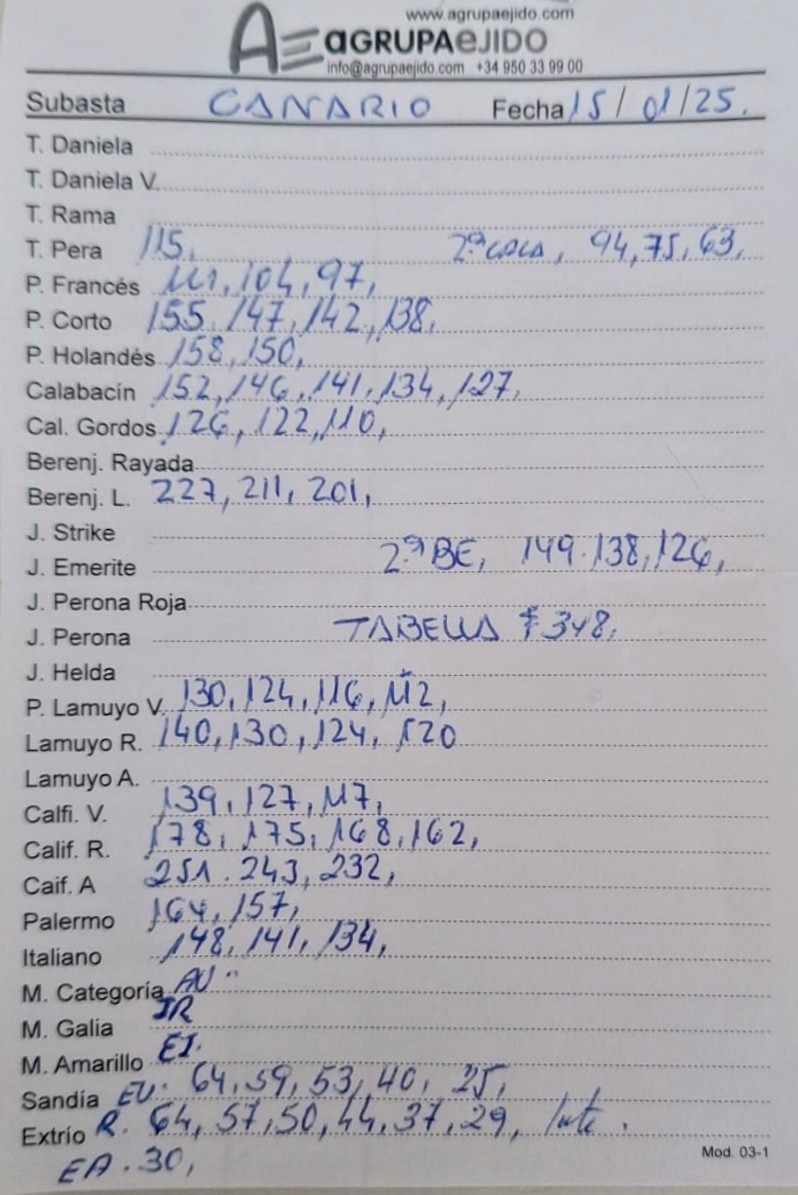 www.agrupaejido.com
AE aGRUPAeJIDO
info@agrupaejido.com +34 950 33 99 00
Subasta CANARIO Fecha 15/01/25.
T. Daniela
T. Daniela V.
T. Rama
T. Pera 115, 2ª COCA, 94, 75, 63,
P. Francés 111, 104, 97,
P. Corto 155, 147, 142, 138,
P. Holandés 158, 150,
Calabacín 152, 146, 141, 134, 127,
Cal. Gordos 126, 122, 110,
Berenj. Rayada
Berenj. L. 227, 211, 201,
J. Strike
J. Emerite 2ª BE, 149. 138, 126,
J. Perona Roja
J. Perona TABELLA 348,
J. Helda
P. Lamuyo V. 130, 124, 116, 112,
Lamuyo R. 140, 130, 124, 120
Lamuyo A.
Calfi. V. 139, 127, 117,
Calif. R. 178, 175, 168, 162,
Caif. A 251. 243, 232,
Palermo 164, 157,
Italiano 148, 141, 134,
M. Categoría
M. Galia IR
M. Amarillo EI.
Sandía EV. 64, 59, 53, 40, 25,
Extrío R. 64, 57, 50, 44, 37, 29,
EA. 30,
Mod. 03-1